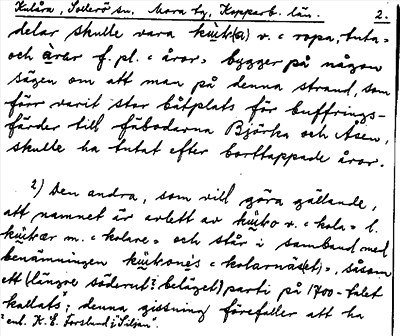 Kulåra, Sollerö sn. Mora tg, Kopparb. län. 2.
delar skulle vara kūt(a) v. "ropa, tuta"
och årar f. pl. "åror", bygger på någon
sägen om att man på denna strand, som
förr varit stor båtplats för buffrings-
färder till fäbodarna Björka och Åsen,
skulle ha tutat efter borttappade åror.
2) Den andra, som vill göra gällande,
att namnet är avlett av v. "kola" l.
m. "kolare" och står i samband med
benämningen "kolarnäs(et)", såsom
ett (längre söderut² beläget) parti på 1700-talet
kallats²; denna gissning förefaller att ha
² enl. K. E. Forslund i "Siljan".